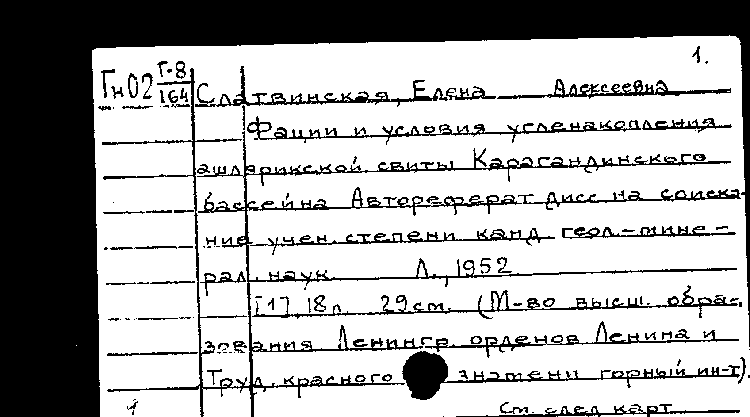 1.
Гн02 Г-8/164 Слатвинская, Елена Алексеевна
Фации и условия угленакопления
ашлярикской свиты Карагандинского
бассейна Автореферат дисс. на соиска-
ние учен. степени канд геол.-мине-
рал. наук. Л., 1952
[1], 18л. 29см. (М-во высш. образ-
зования Ленингр. орденов Ленина и
Труд. красного знамени горный ин-т).
См. след карт
1